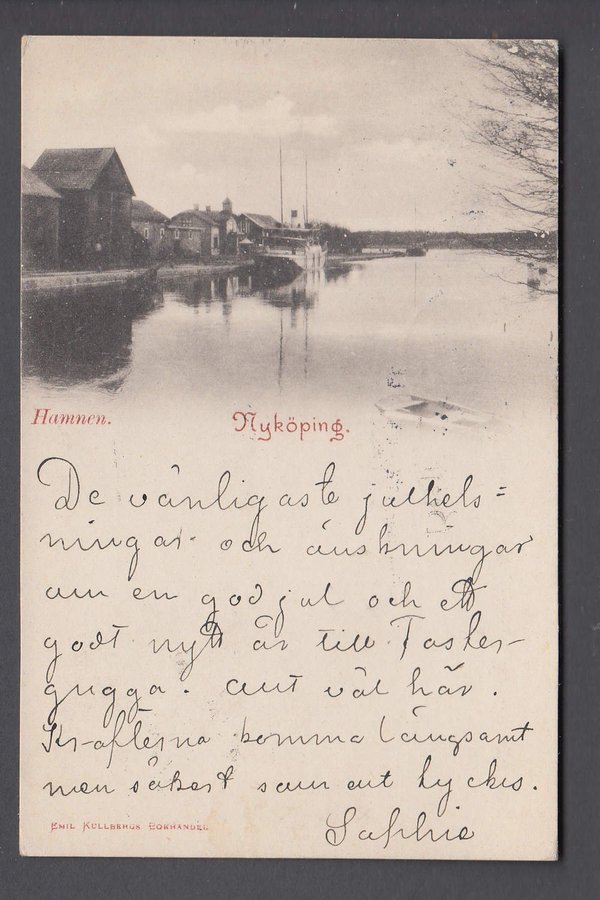 Hamnen.
Nyköping.
De vänligaste julhels=
ningar och önskningar
om en god jul och ett
godt nytt år till Faster
gugga. Allt väl här.
Krafterna komma långsamt
men säkert som det tyckes.
Sophie
EMIL KULLBERGS BOKHANDEL